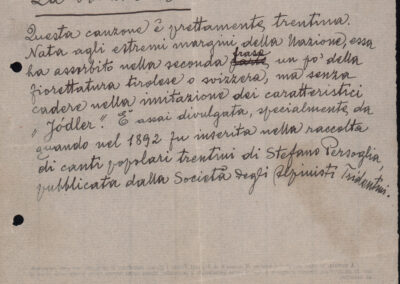 La
Questa canzone è prettamente trentina.
Nata agli estremi margini della Nazione, essa
ha assorbito nella seconda frase un po' della
fiorettatura tirolese o svizzera, ma senza
cadere nella imitazione dei caratteristici
"Jödler". È assai divulgata, specialmente da
quando nel 1892 fu inserita nella raccolta
di canti popolari trentini di Stefano Persoglia,
pubblicata dalla Società degli Alpinisti Tridentini.